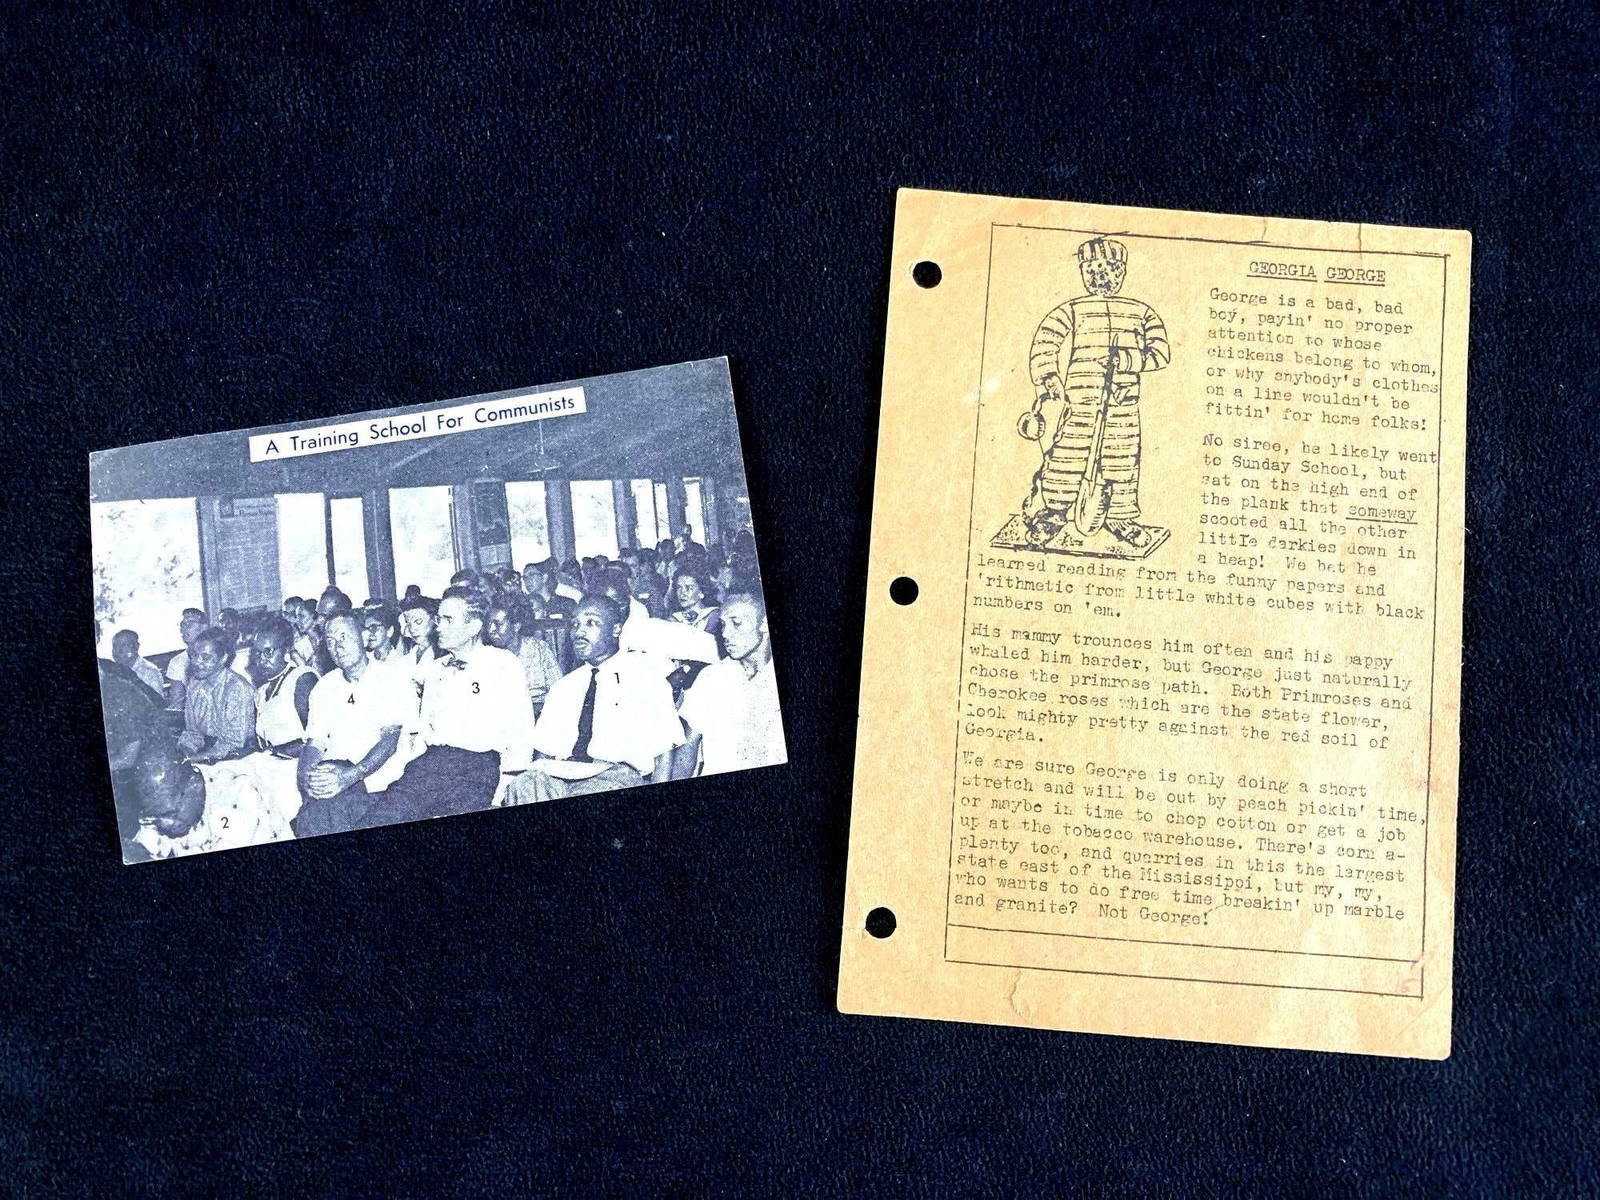 A Training School For Communists
4
3
1
2
GEORGIA GEORGE
George is a bad, bad
boy, payin' no proper
attention to whose
chickens belong to whom,
or why anybody's clothes
on a line wouldn't be
fittin' for home folks!
No siree, he likely went
to Sunday School, but
sat on the high end of
the plank that someway
scooted all the other
little darkies down in
a heap! We bet he
learned reading from the funny papers and
'rithmetic from little white cubes with black
numbers on 'em.
His mammy trounces him often and his pappy
whaled him harder, but George just naturally
chose the primrose path. Both Primroses and
Cherokee roses which are the state flower,
look mighty pretty against the red soil of
Georgia.
We are sure George is only doing a short
stretch and will be out by peach pickin' time,
or maybe in time to chop cotton or get a job
up at the tobacco warehouse. There's corn a-
plenty too, and quarries in this the largest
state east of the Mississippi, but my, my,
who wants to do free time breakin' up marble
and granite? Not George!